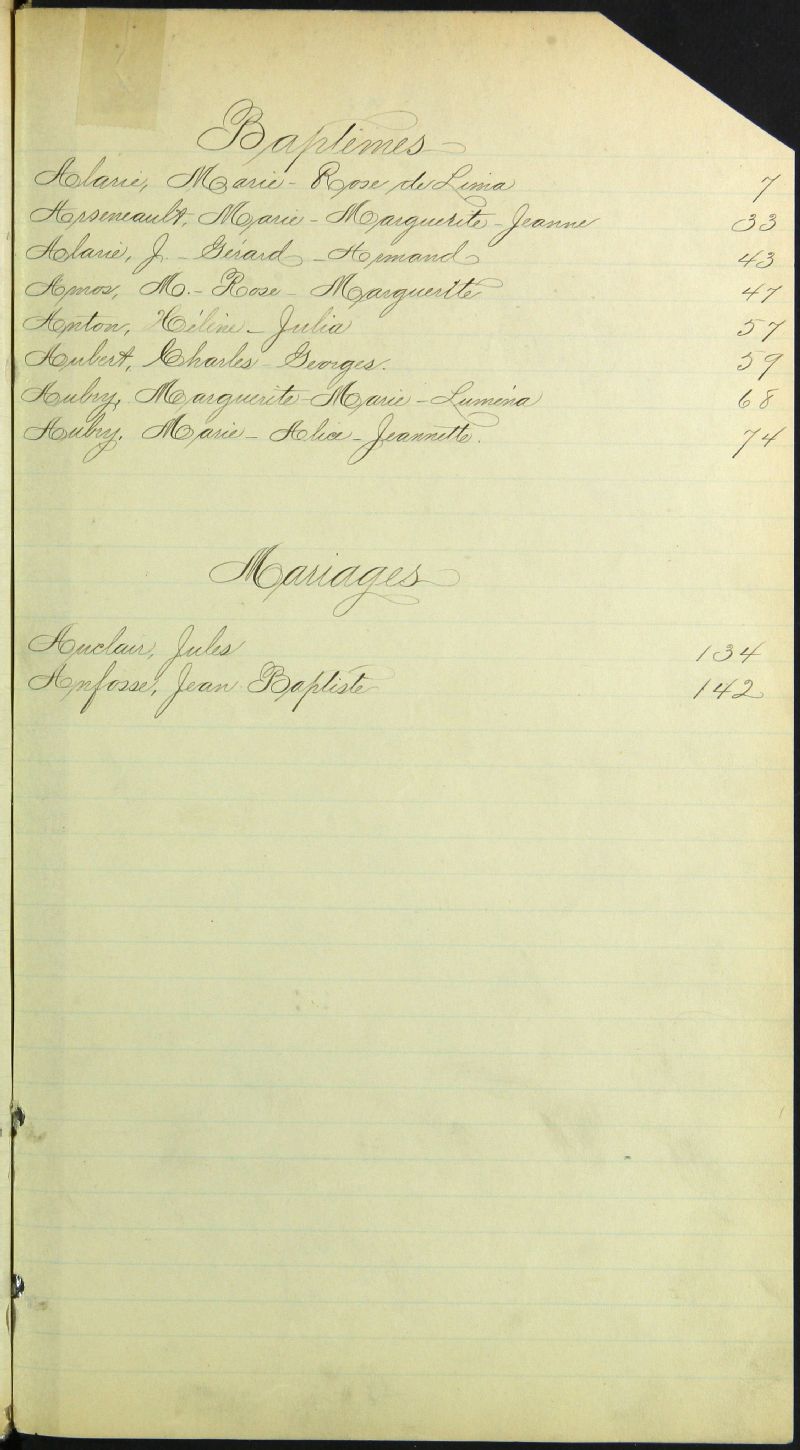 Baptêmes
Alarie, Marie - Rose de Lima 7
Arseneault, Marie - Marguerite - Jeanne 33
Alarie, J. - Gérard - Armand 43
Amos, M. - Rose - Marguerite 47
Anton, Héline - Julia 57
Aubert, Charles - Georges. 59
Aubry, Marguerite - Marie - Luména 68
Aubry, Marie - Alice - Jeannette. 74
Mariages
Auclair, Jules 134
Anfosse, Jean Baptiste 142